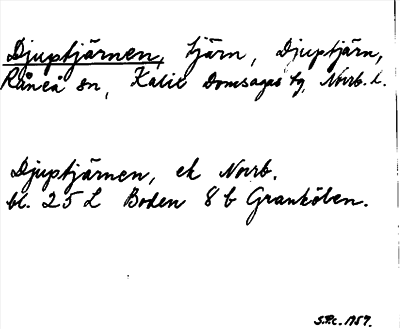 Djuptjärnen, tjärn, Djuptjärn,
Råneå sn, Kalix Domsagas tg, Norrb. l.
Djuptjärnen, ek Norrb.
bl. 25 L Boden 8 b Granköben.
S.P.c. 1957.